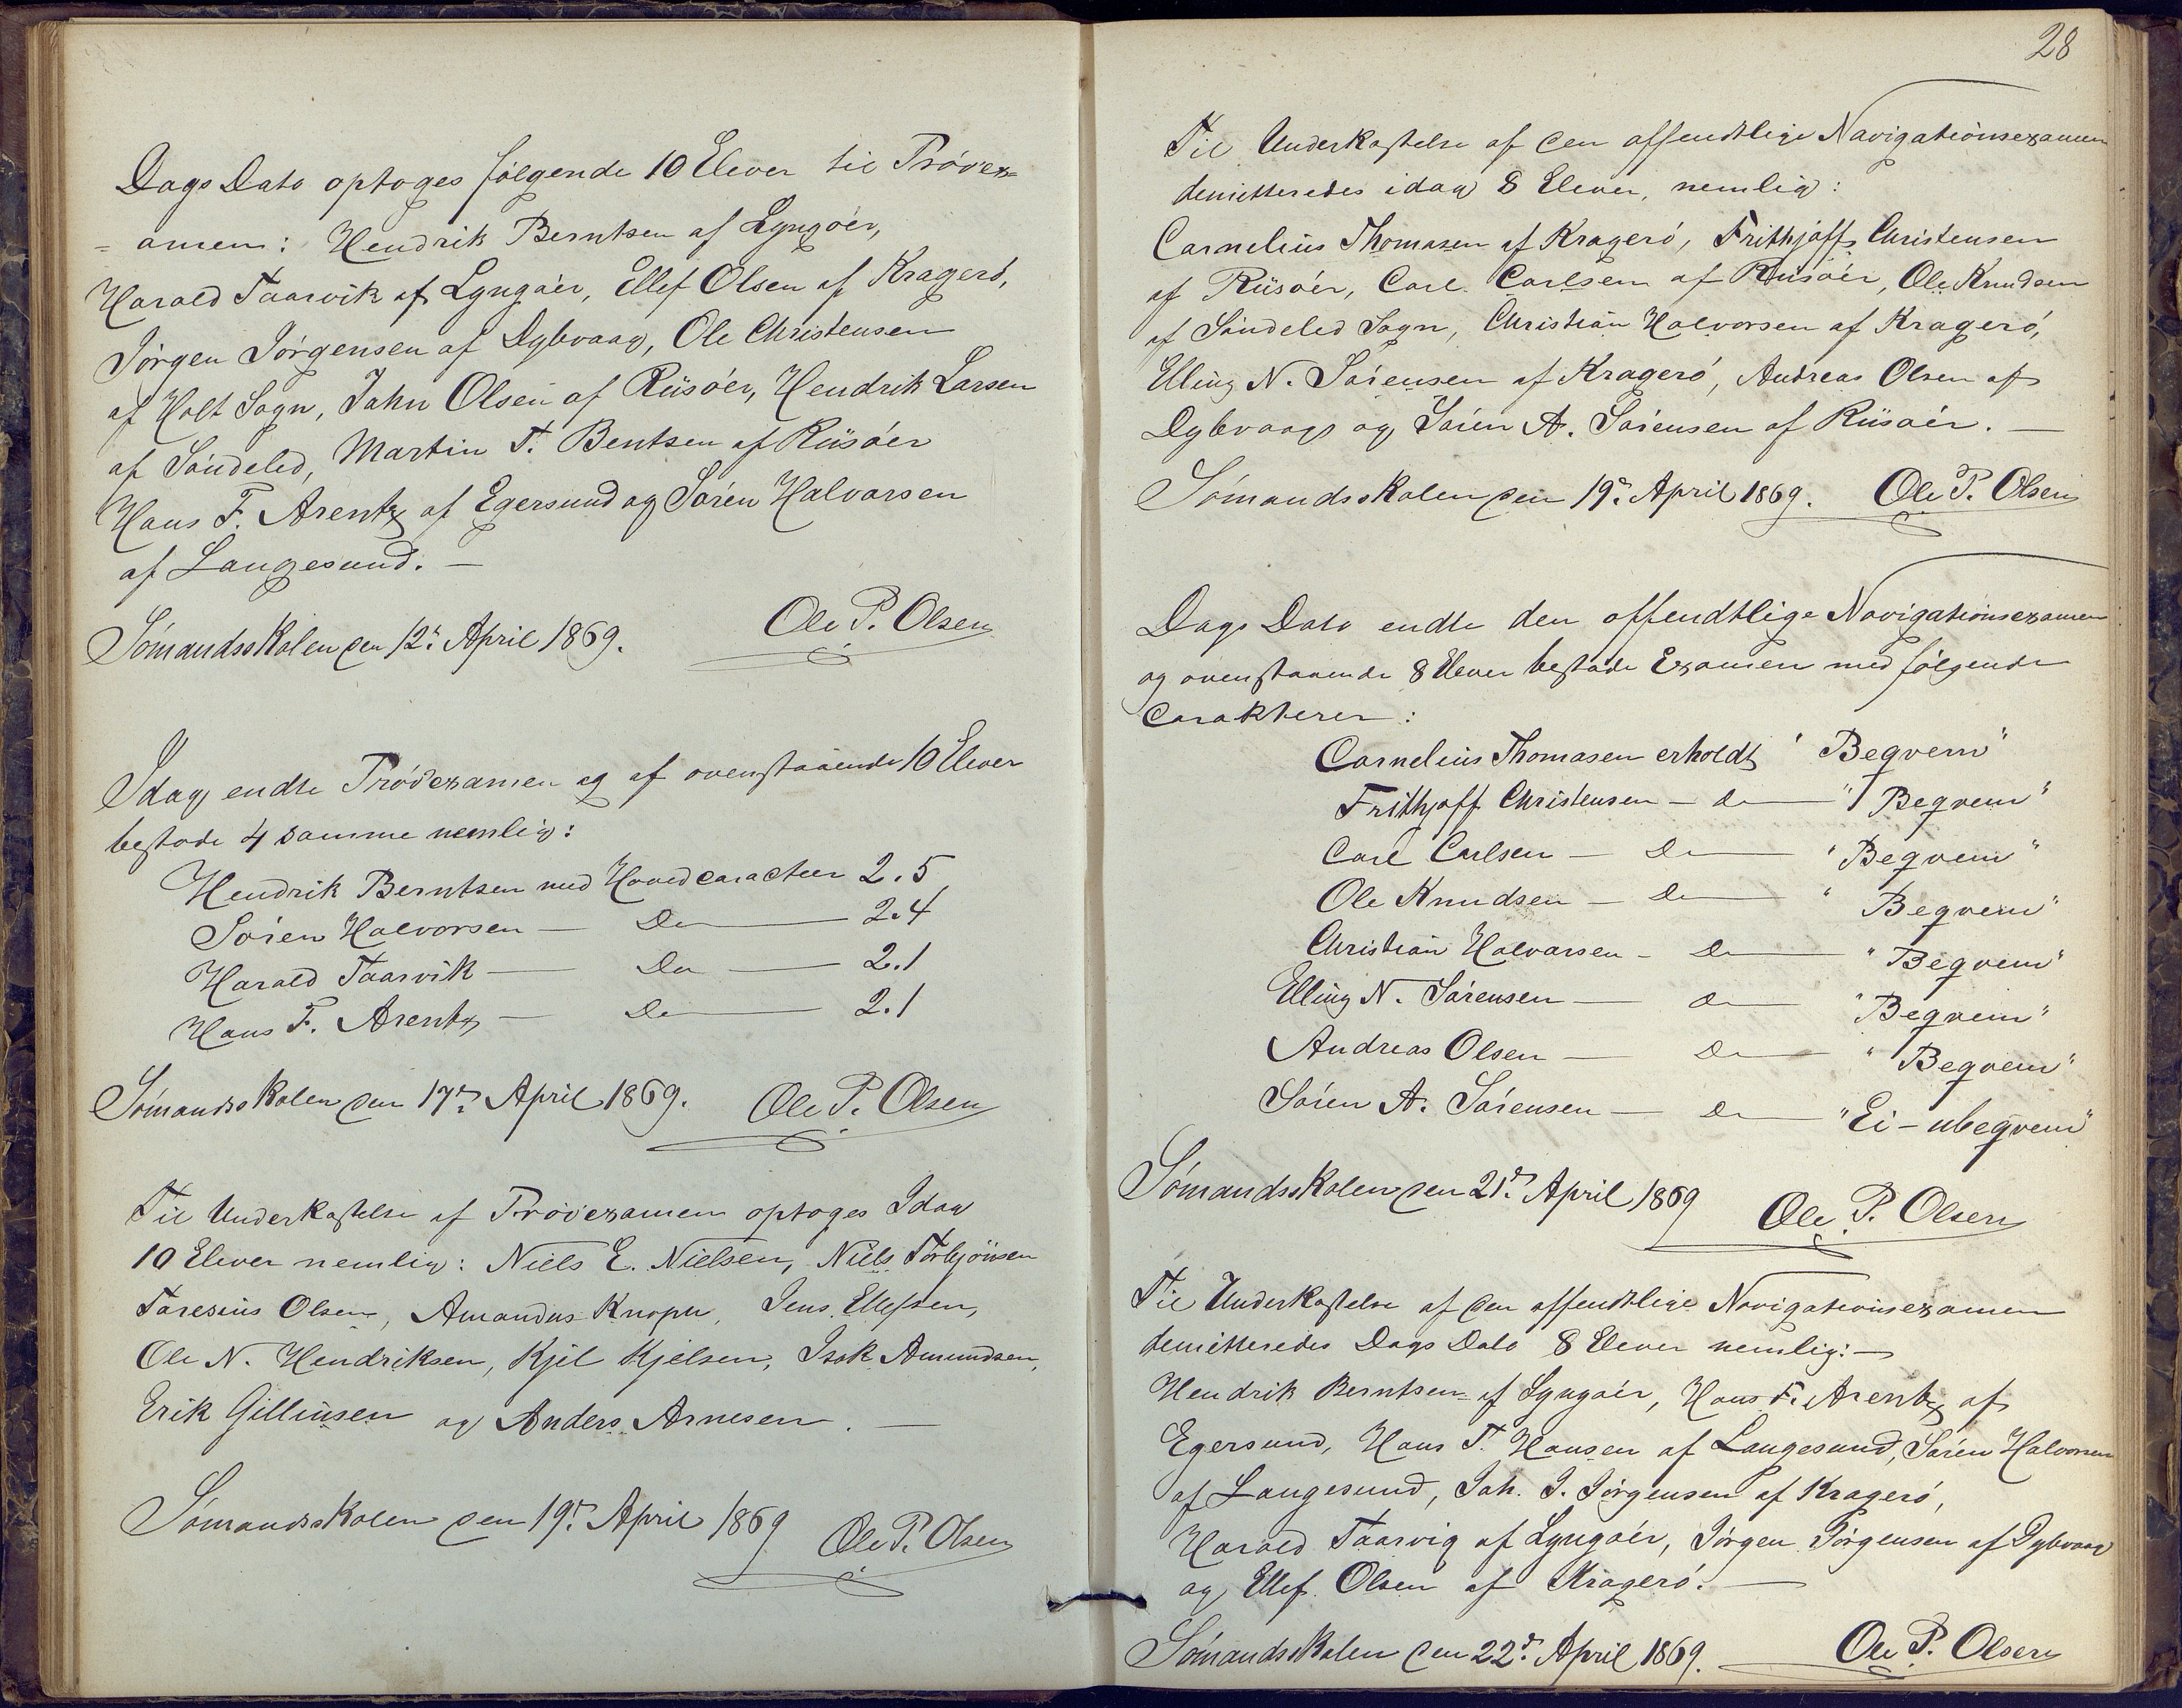 Dags Dato optoges følgende 10 Elever til Prøvex=
= amen: Hendrik Berntsen af Lyngøer,
Harald Taarvik af Lyngøer, Ellef Olsen af Kragerø,
Jørgen Jørgensen af Dybvaag, Ole Christensen
af Holt Sogn, John Olsen af Riisøer, Hendrik Larsen
af Søndeled, Martin T. Bentsen af Riisøer
Hans F. Arentz af Egersund og Søren Halvorsen
af Langesund. —
Sømandsskolen den 12te April 1869. Ole P. Olsen
Idag endte Prøvexamen og af ovenstaaende 10 Elever
bestode 4 samme nemlig:
Hendrik Berntsen med Hovedcaracteer 2.5
Søren Halvorsen — Do — 2.4
Harald Taarvik — Do — 2.1
Hans F. Arentz — Do — 2.1
Sømandsskolen den 17de April 1869. Ole P. Olsen
Til Underkastelse af Prøvexamen optoges Idag
10 Elever nemlig: Niels E. Nielsen, Niels Torbjønsen
Taresius Olsen, Amandus Knoph, Jens Ellefsen,
Ole N. Hendriksen, Kjel Kjelsen, Isak Amundsen,
Erik Gillinsen og Anders Arnesen. —
Sømandsskolen den 19de April 1869 Ole P. Olsen
28
Til Underkastelse af den offendtlige Navigationsexamen
demitteredes idag 8 Elever, nemlig:
Cornelius Thomasen af Kragerø, Frithjoff Christensen
af Riisøer, Carl Carlsen af Riisøer, Ole Knudsen
af Søndeled Sogn, Christian Halvorsen af Kragerø,
Elling N. Sørensen af Kragerø, Andreas Olsen af
Dybvaag og Søren A. Sørensen af Riisøer. —
Sømandsskolen den 19de April 1869. Ole P. Olsen
Dags Dato endte den offendtlige Navigationsexamen
og ovenstaaende 8 Elever bestode Examen med følgende
Carakterer:
Cornelius Thomasen erholdt "Beqvem"
Frithjoff Christensen — do — "Beqvem"
Carl Carlsen — Do — "Beqvem"
Ole Knudsen — Do — "Beqvem"
Christian Halvorsen — Do — "Beqvem"
Elling N. Sørensen — do — "Beqvem"
Andreas Olsen — Do — "Beqvem"
Søren A. Sørensen — Do — "Ei - ubeqvem"
Sømandsskolen den 21de April 1869 Ole P. Olsen
Til Underkastelse af den offendtlige Navigationsexamen
demitteredes Dags Dato 8 Elever nemlig: —
Hendrik Berntsen af Lyngøer, Hans F. Arentz af
Egersund, Hans T. Hansen af Langesund, Søren Halvorsen
af Langesund, Joh. J. Jørgensen af Kragerø,
Harald Taarvig af Lyngøer, Jørgen Jørgensen af Dybvaag
og Ellef Olsen af Kragerø. —
Sømandsskolen den 22de April 1869. Ole P. Olsen